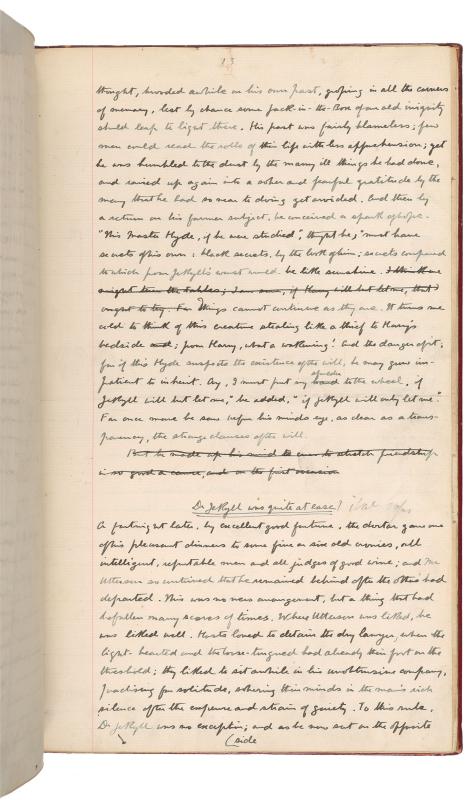 13
thought, brooded awhile on his own past, groping in all the corners
of memory, lest by chance some Jack-in-the-Box of an old iniquity
should leap to light there. His past was fairly blameless; few
men could read the rolls of their life with less apprehension; yet
he was humbled to the dust by the many ill things he had done,
and raised up again into a sober and fearful gratitude by the
many that he had so near to doing yet avoided. And then by
a return on his former subject, he conceived a spark of hope.
"This Master Hyde, if he were studied", thought he, "must have
secrets of his own: black secrets, by the look of him; secrets compared
to which poor Jekyll's worst would be like sunshine. I think we
might turn the tables; I am sure, if Harry will but let me, that I
ought to try. For Things cannot continue as they are. It turns me
cold to think of this creature stealing like a thief to Harry's
bedside and; poor Harry, what a wakening! And the danger of it,
for if this Hyde suspects the existence of the will, he may grow im-
patient to inherit. Ay, I must put my shoulder to the wheel, if
Jekyll will but let me," he added, "if Jekyll will only let me."
For once more he saw before his mind's eye, as clear as a trans-
parency, the strange clauses of the will.
But he made up his mind to stretch friendship
in so good a cause, and on the first occasion
Dr Jekyll was quite at ease
A fortnight later, by excellent good fortune, the doctor gave one
of his pleasant dinners to some five or six old cronies, all
intelligent, reputable men and all judges of good wine; and Mr
Utterson so contrived that he remained behind after the others had
departed. This was no new arrangement, but a thing that had
befallen many scores of times. Where Utterson was liked, he
was liked well. Hosts loved to detain the dry lawyer, when the
light-hearted and the loose-tongued had already their foot on the
threshold; they liked to sit awhile in his unobtrusive company,
practising for solitude, sobering their minds in the man's rich
silence after the expense and strain of gaiety. To this rule,
Dr Jekyll was no exception; and as he now sat on the opposite
(side